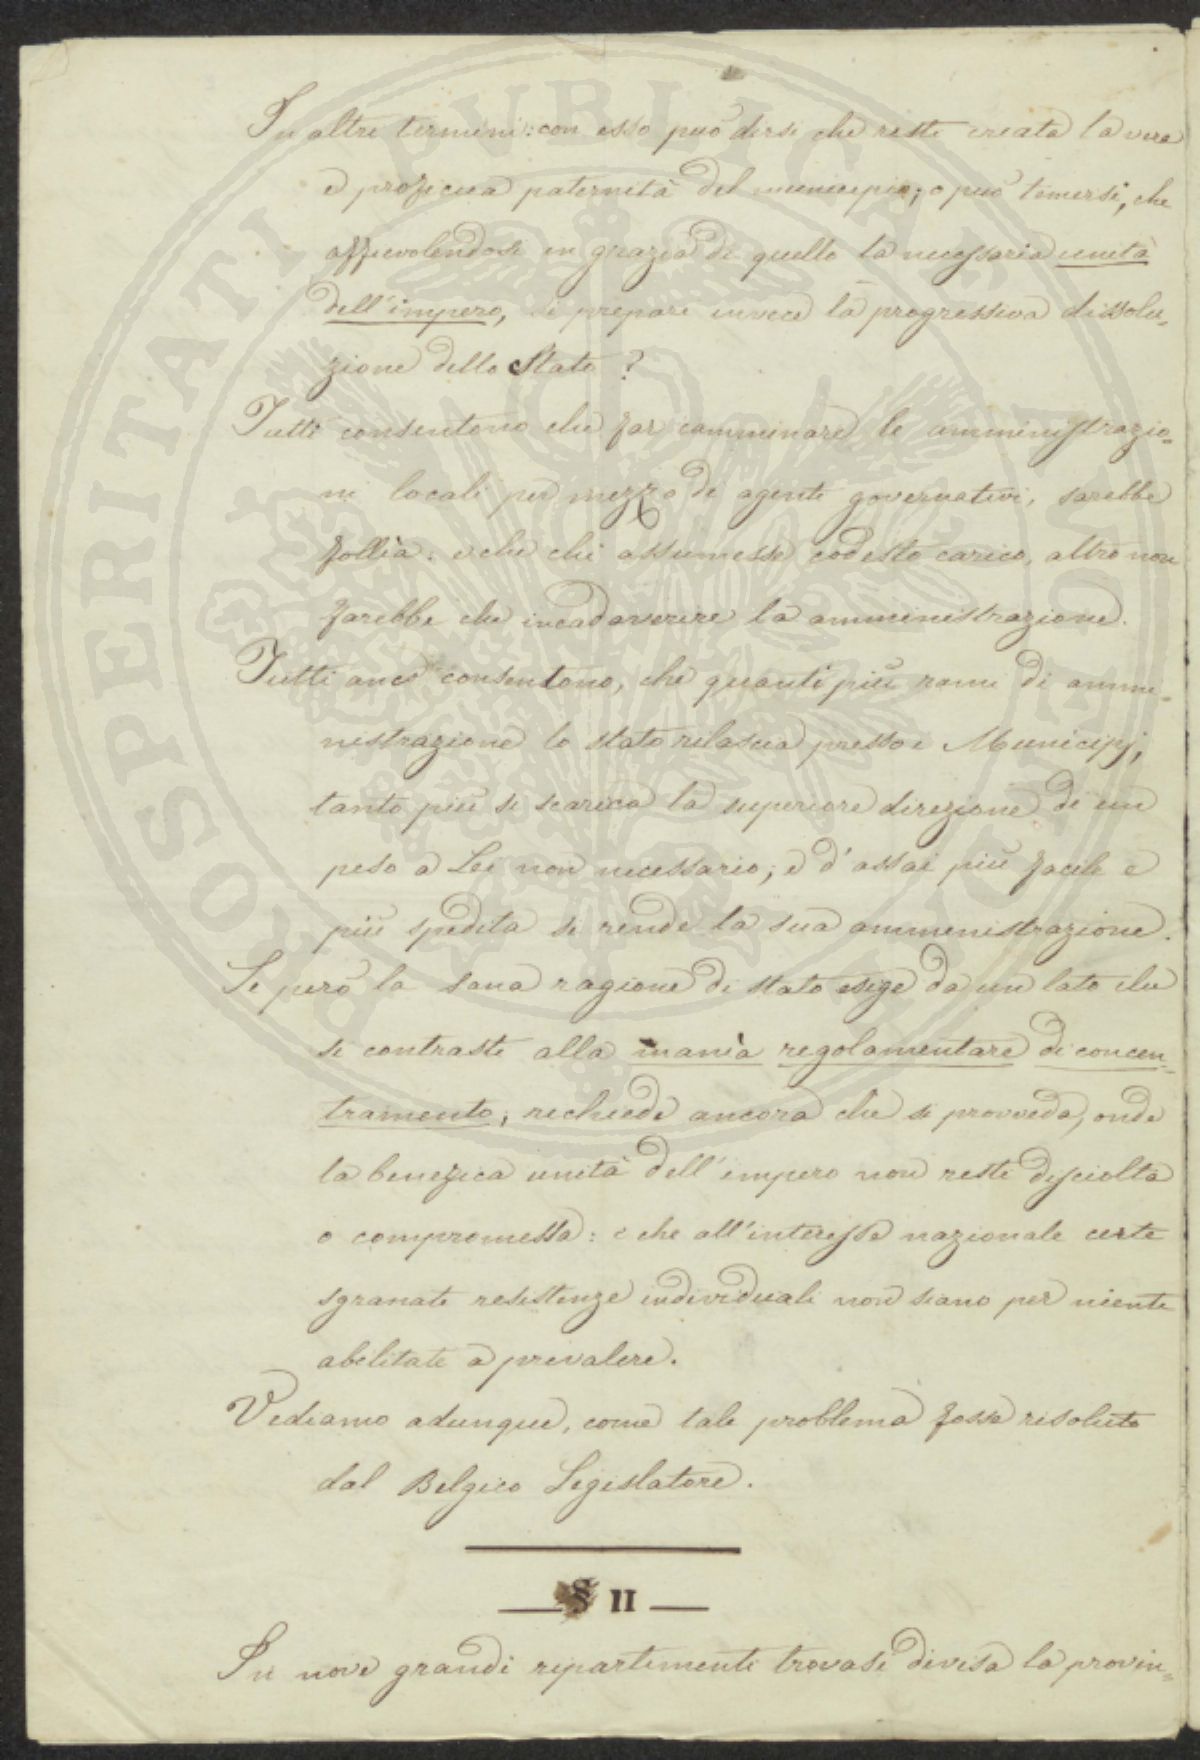 In altri termini: con esso può dirsi che resti creata la vera
e proficua paternità del municipio; o può temersi, che
affievolendosi in grazia di quello la necessaria unità
dell'impero, si prepari invece la progressiva dissolu-
zione dello Stato?
Tutti consentono che far camminare le amministrazio-
ni locali per mezzo di agenti governativi, sarebbe
follìa: e che chi assumesse codesto carico, altro non
farebbe che incadaverire la amministrazione.
Tutti anco consentono, che quanti più rami di ammi-
nistrazione lo stato rilascia presso i Municipj,
tanto più si scarica la superiore direzione di un
peso a Lei non necessario; e d'assai più facile e
più spedita si rende la sua amministrazione.
Se però la sana ragione di stato esige da un lato che
si contrasti alla manìa regolamentare di concen-
tramento; richiede ancora che si provveda, onde
la benefica unità dell'impero non resti disciolta
o compromessa: e che all'interesse nazionale certe
sgranate resistenze individuali non siano per niente
abilitate a prevalere.
Vediamo adunque, come tale problema fosse risoluto
dal Belgico Legislatore.
§ II
In nove grandi ripartimenti trovasi divisa la provin-
PROSPERITATI PVBLICAE